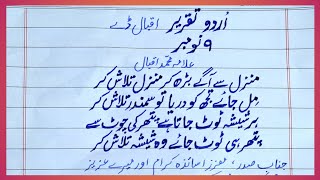 اُردو تقریر اقبال ڈے
۹ نومبر
علامہ محمد اقبال
منزل سے آگے بڑھ کر منزل تلاش کر
مل جائے تجھ کو دریا تو سمندر تلاش کر
ہر شیشہ ٹوٹ جاتا ہے پتھر کی چوٹ سے
پتھر ہی ٹوٹ جائے وہ شیشہ تلاش کر
جناب صدر، معزز اساتذہ کرام اور میرے عزیز